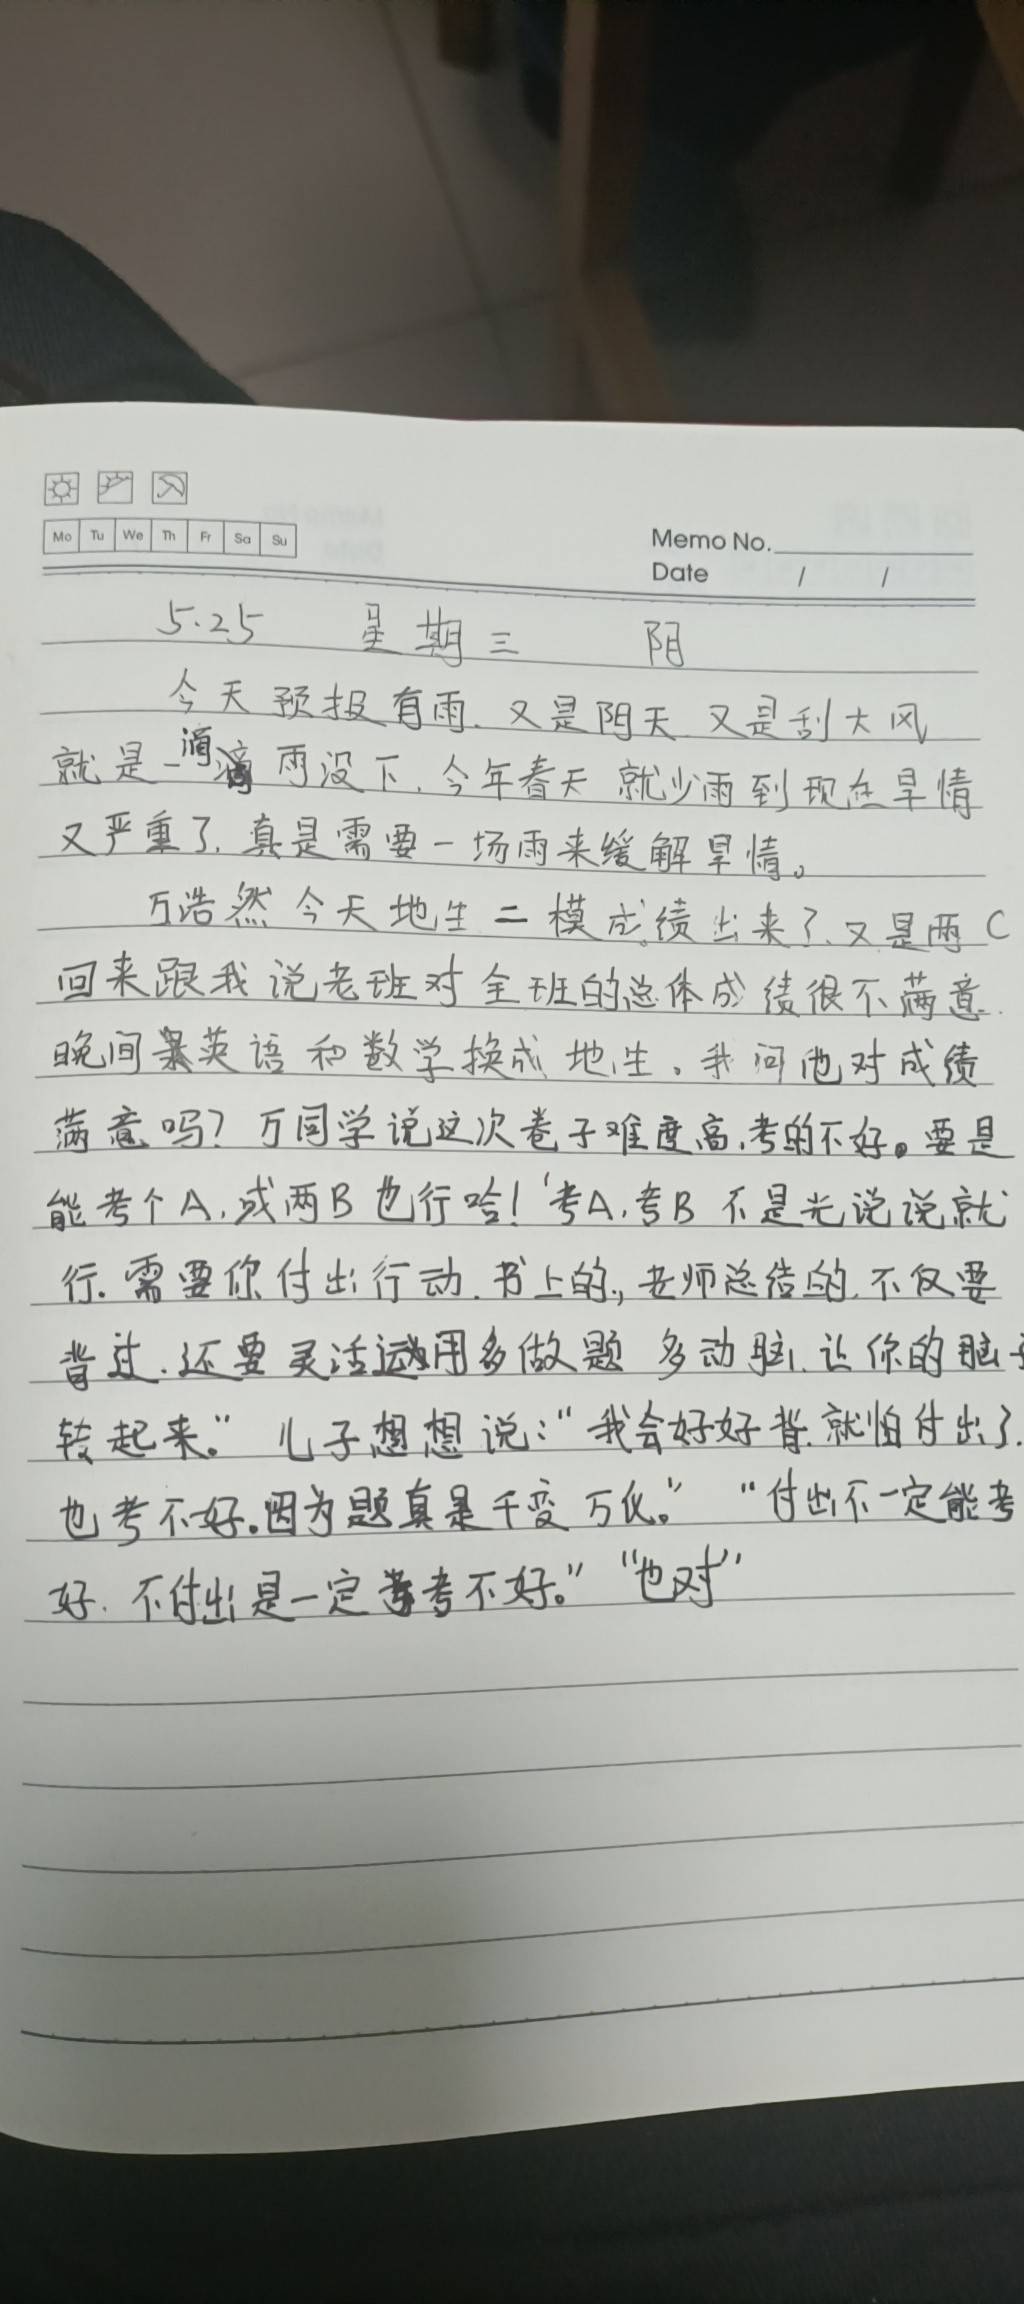 Mo Tu We Th Fr Sa Su
Memo No.
Date / /
5.25 星期三 阴
今天预报有雨.又是阴天.又是刮大风
就是一滴雨没下.今年春天就少雨到现在旱情
又严重了.真是需要一场雨来缓解旱情。
万浩然今天地生二模成绩出来了.又是两C
回来跟我说老班对全班的总体成绩很不满意.
晚间英语和数学换成地生。我问他对成绩
满意吗？万同学说这次卷子难度高.考的不好。要是
能考个A,或两B也行哈！‘考A,考B不是光说说就
行.需要你付出行动.书上的,老师总结的.不仅要
背过.还要灵活运用多做题 多动脑.让你的脑子
转起来。” 儿子想想说：“我会好好背.就怕付出了.
也考不好.因为题真是千变万化。” “付出不一定能考
好.不付出是一定考不好。” “也对”